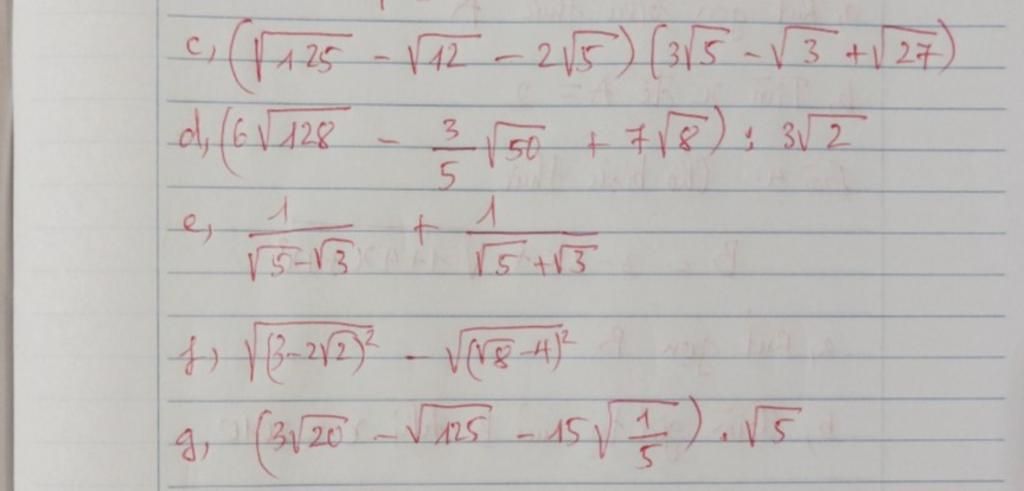 c, (√125 - √12 - 2√5) (3√5 - √3 + √27)
d, (6√128 - 3/5 √50 + 7√8) : 3√2
e, 1/(√5-√3) + 1/(√5+√3)
f, √(3-2√2)² - √(√8-4)²
g, (3√20 - √125 - 15√(1/5)) . √5